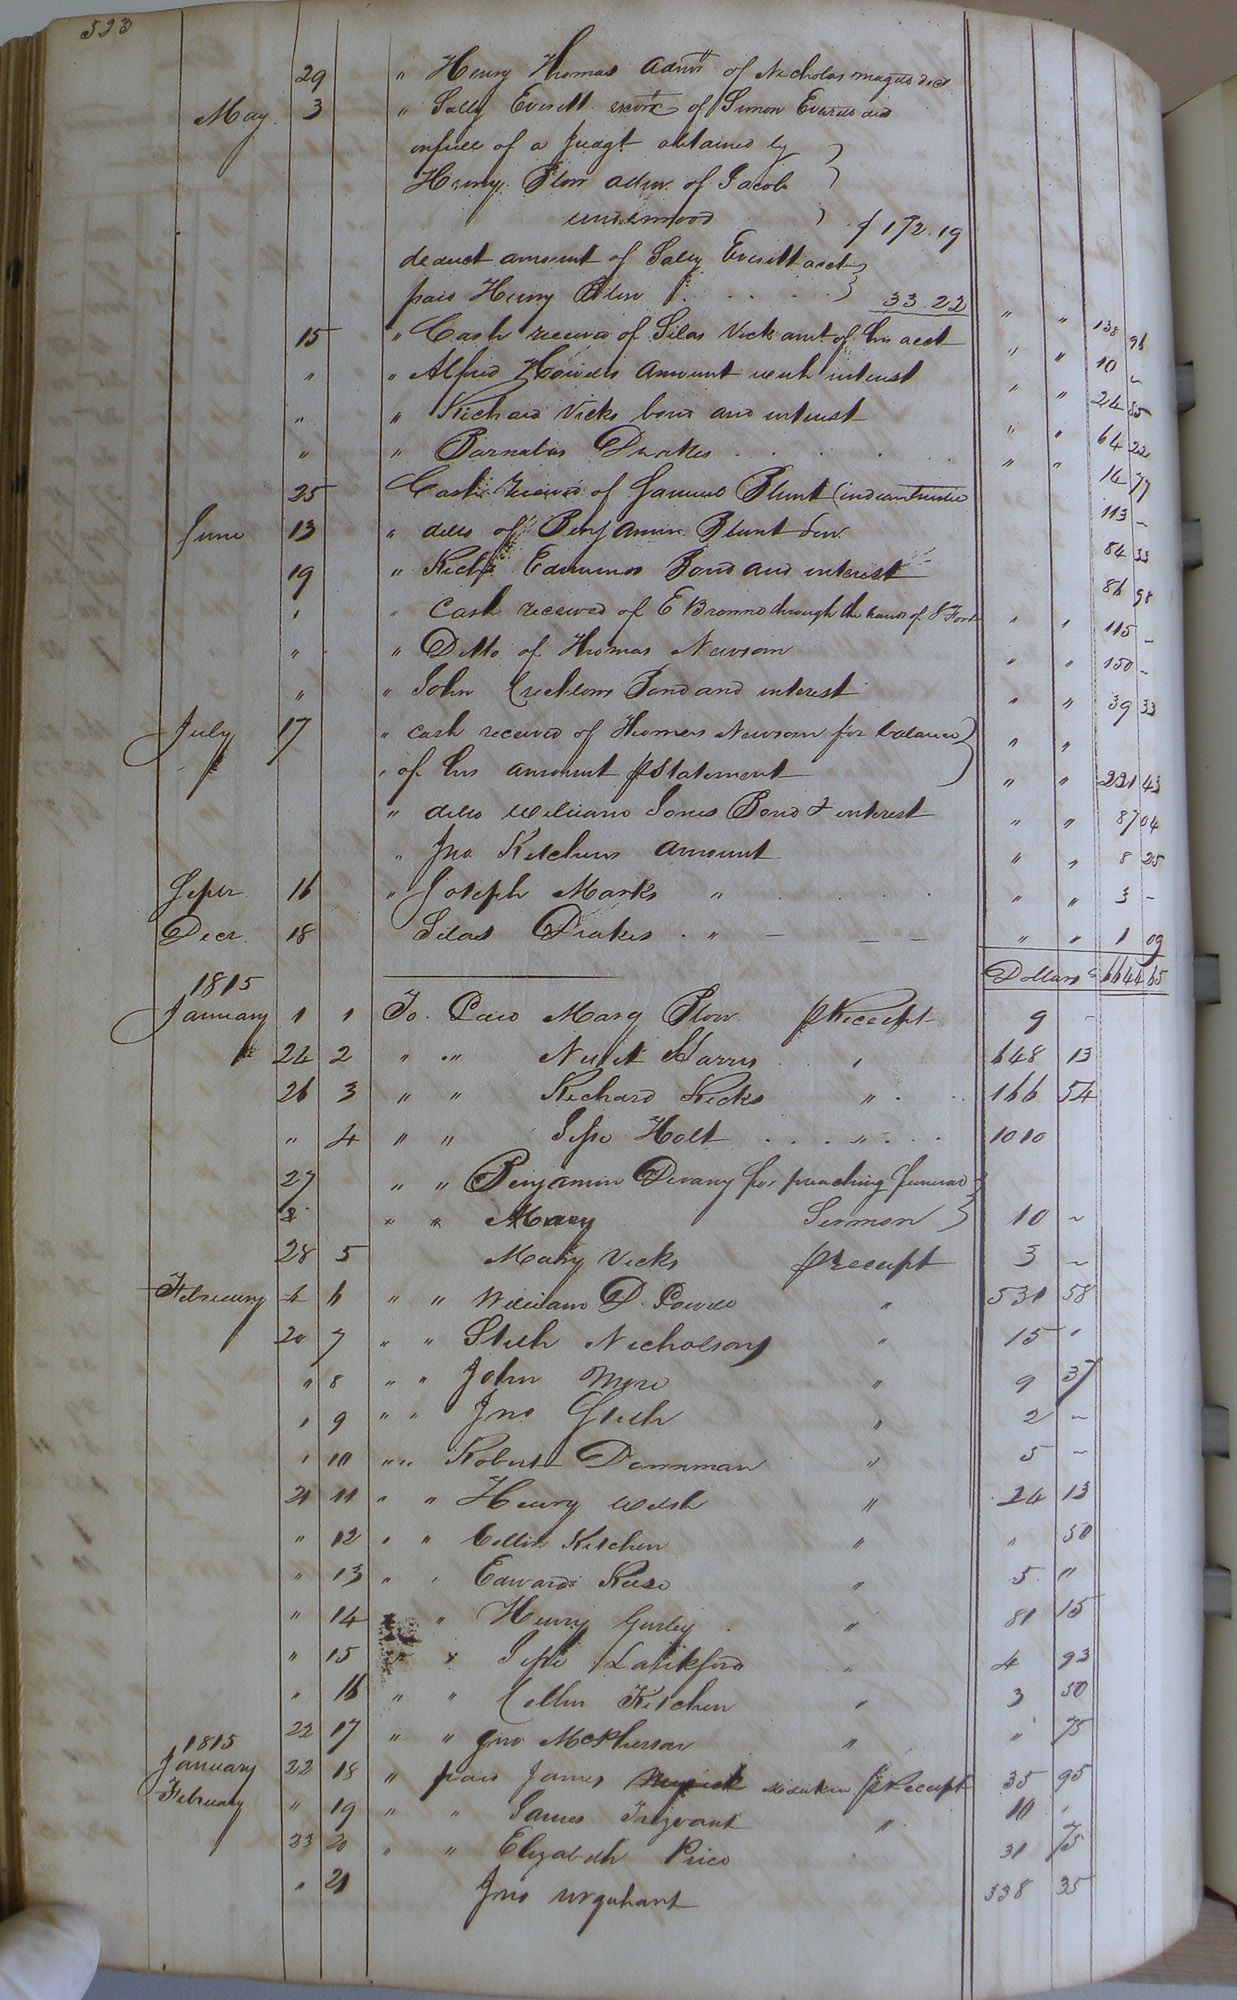 523
29 " Henry Thomas admr of Nicholas
May 3 " Sally Everitt exorx of Simon Everitt decd
infull of a Judgt obtained by
Henry Blow admr. of Jacob
underwood $ 172.19
deduct amount of Sally Everitt acct
paid Henry Blow . . . . 33.22 " " 138 96
15 " Cash received of Silas Vick amt of his acct " " 10 ~
" " Alfred Howells amount with interest " " 24 85
" " Richard Vicks bond and interest " " 64 22
" " Barnabas Drakes . . . . " " 14 77
25 Cash received of James Blunt 113 ~
June 13 " ditto of Benjamin Blunt Senr. 84 33
19 " Richd Edmunds Bond and interest 86 98
" " Cash received of E Browne through the hands of " " 115 ~
" " Ditto of Thomas Newsom " " 150 ~
" " John Bond and interest " " 39 33
July 17 " cash received of Thomas Newsom for balance " "
" of his amount pr Statement " " 221 43
" ditto William Jones Bond & interest " " 87 04
" Jno. Kitchens amount " " 8 25
Sepr. 16 " Joseph Marks " . . . " " 3 ~
Decr. 18 Silas Drakes . " — — — " " 1 09
Dollars 6644 65
1815
January 1 1 To Paid Mary Blow pr Receipt 9 ~
24 2 " " Newit Harris " 648 13
26 3 " " Richard Ricks " 166 54
" 4 " " Jesse Holt . . . " . . 10 10
27 " " Benjamin Devany for preaching funeral
" " Mary Sermon 10 ~
28 5 Mary Vicks pr receipt 3 ~
February 4 6 " " William D. Powell " 531 58
20 7 " " Stith Nicholson " 15 "
" 8 " " John " 9 37
" 9 " " Jno Stith " 2 ~
" 10 " " Robert " 5 ~
21 11 " " Henry " 24 13
" 12 " " Collin Kitchen " " 50
" 13 " " Edward " 5 "
" 14 " " Henry Gurley . " 81 15
" 15 " " Jesse Lankford " 4 93
" 16 " " Collin Kitchen " 3 50
22 17 " " Jno McPherson " " 75
1815
January 22 18 " paid James pr Receipt 35 95
February " 19 " " James Trezvant " 10 "
23 20 " " Elizabeth Price " 31 75
" 21 Jno Urquhart 338 35